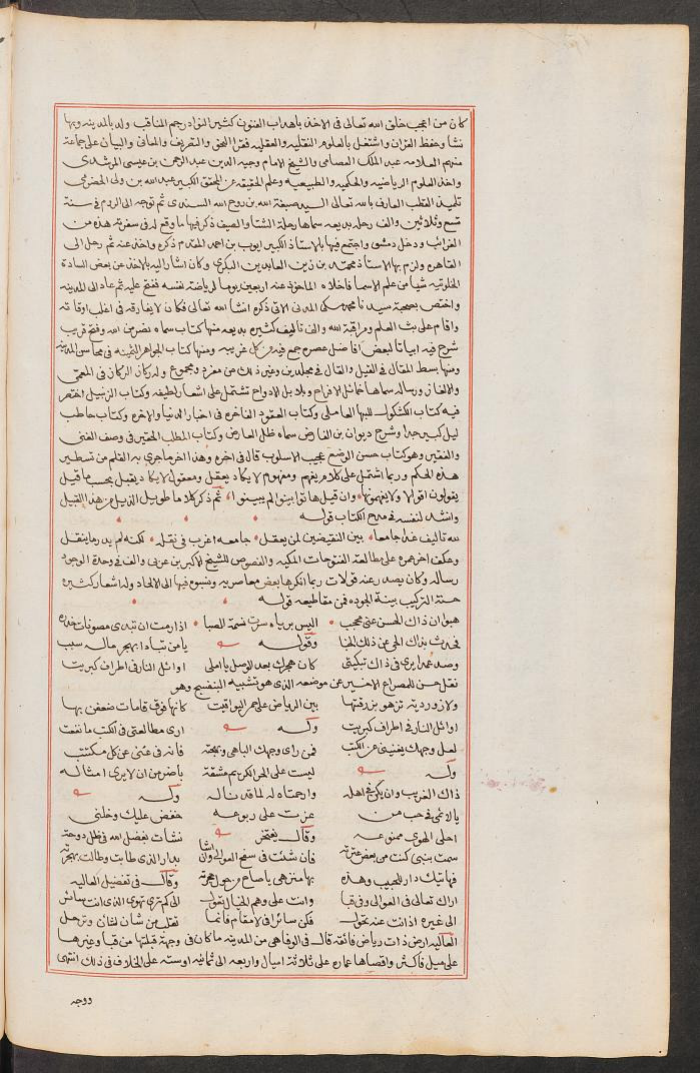 كان من اعجب خلق الله تعالى فى الاخذ باهداب الفنون كثير النوادر جم المناقب ولد بالمدينه وبها
نشأ وحفظ القران واشتغل بالعلوم النقليه والعقليه فقرا النحو والتصريف والمعانى والبيان على جماعة
منهم العلامه عبد الملك العصامى والشيخ الامام وجيه الدين عبد الرحمن بن عيسى المرشدى
واخذ العلوم الرياضيه والحكميه والطبيعيه وعلم الحقيقه عن المحقق الكبير عبد الله بن ولى الحضرمى
تلميذ القطب العارف بالله تعالى السيد صبغة الله بن روح الله السندى ثم توجه الى الروم فى سنة
تسع وثلاثين والف رحله بديعه سماها رحلة الشتا والصيف ذكر فيها ما وقع له فى سفرته هذه من
الغرائب ودخل دمشق واجتمع فيها بالاستاذ الكبير ايوب بن احمد المقدم ذكره واخذ عنه ثم رحل الى
القاهره ولزم بها الاستاذ محمد بن زين العابدين البكرى وكان اشار اليه بالاخذ عن بعض السادة
الخلوتيه شيا من علم الاسما فاخلاه الماخوذ عنه اربعين يوما لرياضة نفسه ففتح عليه ثم عاد الى المدينه
واختص بصحبة سيدنا محمد مكى المدنى الاتى ذكره انشا الله تعالى فكان لا يفارقه فى اغلب اوقاته
واقام على بث العلم ومراقبة الله والف تاليف كثيره بديعه منها كتاب سماه نصر من الله وفتح قريب
شرح فيه ابياتا لبعض افاضل عصره جمع فيه من كل غريبه ومنها كتاب الجواهر الثمينه فى محاسن المدينه
ومنها بسط المقال فى القيل والقال فى مجلدين وغير ذلك من مفرد ومجموع وله ركان الركان فى المعمى
والالغاز ورساله سماها خمائل الافراح وبلابل الادواح تشتمل على اشعار لطيفه وكتاب الزنبيل اختصر
فيه كتاب الكشكول للبها العاملى وكتاب العقود الفاخره فى اخبار الدنيا والاخره وكتاب حاطب
ليل كبير جدا وشرح ديوان بن الفارض سماه ظل العارض وكتاب المطلب الحقير فى وصف الغنى
والفقير وهو كتاب حسن الوضع عجيب الاسلوب قال فى اخره وهذا اخر ما جرى به القلم من تسطير
هذه الحكم وربما اشتمل على كلام يفهم ومفهوم لا يكاد يعقل ومعقول لا يكاد يقبل بحسب ما قيل
يقولون اقوالا ولا يفهمونها وان قيل هاتوا بينوا لم يبينوا ثم ذكر كلاما طويل الذيل من هذا القبيل
وانشد لنفسه فى مدح الكتاب قوله
لله تاليف غدا جامعا بين النقيضين لمن يعقل جامعه اغرب فى نقله لكنه لم يدر ما ينقل
وعكف اخر عمره على مطالعة الفتوحات المكيه والفصوص للشيخ الاكبر بن عربى والف فى وحدة الوجود
رساله وكان يصدر عنه قولات ربما انكرها بعض معاصريه ونسبوه فيها الى الالحاد وله اشعار كثيره
حسنة التركيب بينة الجوده فمن مقاطيعه قوله
هبوا ان ذاك الحسن عنى محجب اليس برياه سرت نسمة الصبا اذا رمت ان تبدى مصونات خدره
فحدث بذاك الحى عن ذلك الخبا وقوله يا من تبادا بهجر ماله سبب
وصد عمدا رى فى ذاك تبكيتى كان هجرك بعد الوصل يا املى اوائل النار فى اطراف كبريت
نقل حسن للمصراع الاخير عن موضعه الذى هو تشبيه البنفسج وهو
ولازوردية تزهو بزرقتها بين الرياض على حمر اليواقيت كانها فوق قامات ضعفن بها
اوائل النار فى اطراف كبريت وله ارى مطالعتى فى الكتب ما نفعت
لعل وجهك يغنينى عن الكتب فمن راى وجهك الباهى وبهجته فانه فى غنى عن كل مكتتب
وله ليست على الحر الكريم مشقة باضر من ان لا يرى امثاله
ذاك الغريب وان يكن فى اهله وارحمتاه له لما قد ناله وله
يا لائمى فى حب من عزت على ربوعه خفض عليك وخلنى
احلى الهوى ممنوعه وقال يفتخر نشات بفضل الله فى ظل دوحة
سمت بنبى كنت من بعض عترته فان شئت فى سفح العوالى وان تشا بدار الذى طابت وطالت بهجرته
فهاتيك دار للحبيب وهذه بها منزهى يا صاح من حول حجرته وقال فى تفضيل العاليه
اراك تعالى فى العوالى وفى قبا وانت على وهم الخيال تعول الى كم ترى تهوى الذى انت سائر
الى غيره اذ انت عنه تحول فكن سائرا فى لا مقام فانما تقلب من شان لشان وترحل
العاليه ارض ذات رياض فائقه قال فى الوفا هى من المدينه ما كان فى وجهة قبلتها من قبا وغيرها
على ميل فاكثر واقصاها عماره على ثلاثة اميال واربعه الى ثمانيه او سته على الخلاف فى ذلك انتهى
ووجه